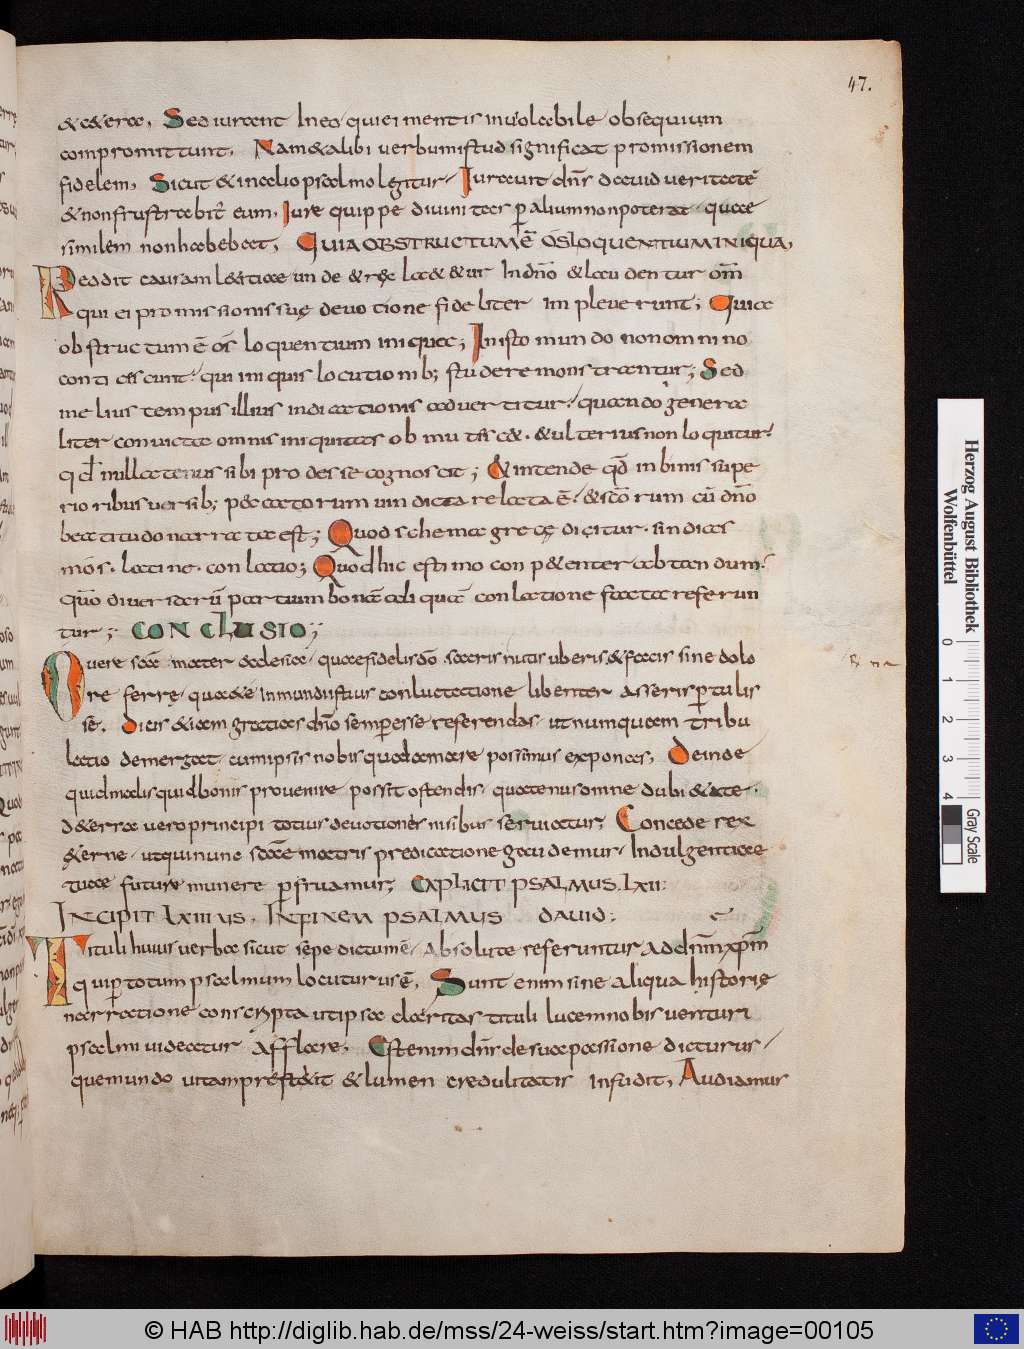 47.
& cetera. Sed iurant In eo qui ei mentis inuiolabile obsequium
compromittunt. Nam & alibi uerbum istud significat promissionem
fidelem, Sicut & in alio psalmo legitur. Iurauit dn̄s dauid ueritatē
& non frustrabit̄ eum, Iure quippe diuinitas ꝑ alium non poterat quae
similem non habebat, QUIA OBSTRUCTUM Ē OS LOQUENTIUM INIQUA,
Reddit causam laetitiae unde & rex laet&ur In dn̄o & laudentur om̄s
qui ei promissionis suę deuotione fideliter impleuerunt; Quia
obstructum ē os loquentium iniqua; In isto mundo non omnino
conticescunt qui iniquis locutionib; studere monstrantur; Sed
melius tempus illius indicationis aduertitur quando genera
liter conuicta omnis iniquitas obmutesc&. & ulterius non loquitur.
qd̄ nullatenus sibi prodesse cognoscit; & intende qd̄ in binis supe
rioribus uersib; peccatorum uindicta relata ē. & sc̄orum cū dn̄o
beatitudo narrata est; Quod schema grece dicitur. sindias
mos. latine. conlatio; Quod hic estimo conpetenter aptandum.
quō diuersarū partium bona ł aliqua ē conlatione facta referun
tur; CONCLUSIO;
Quere sc̄a mater aecclesia quae fidelis dō sacris nutris uberis & facis sine dolo
re ferre quae de inmundis tuis conluctatione libenter asseris ꝑtulis
se. Dicis & iam gratias dn̄o semper esse referendas ut numquam tribu
latio demergat cum ipsis nobis quod amare possimus exponas, Deinde
quid malis quid bonis prouenire possit ostendis quatenus omne dubi&ate
d&erra uero principi totius deuotionis nisibus seruiatur; Concede rex
&erne ut qui nunc sc̄ae matris predicatione gaudemur Indulgentiae
tuae future munere ꝑfruamur; EXPLICIT PSALMUS LXII:
INCIPIT LXIII US. IN FINEM PSALMUS DAVID;
Tituli huius uerba sicut sepe dictum ē Absolute referuntur ad dn̄m xp̄m
qui ꝑ totum psalmum locuturus ē, Sunt enim sine aliqua historię
narratione conscripta ut ipsa claritas tituli lucem nobis uenturi
psalmi uideatur afflare. Est enim dn̄s de sua passione dicturus
que mundo uitam prestitit & lumen credulitatis infudit, Audiamus
Herzog August Bibliothek
Wolfenbüttel
0 1 2 3 4
Gray Scale
© HAB http://diglib.hab.de/mss/24-weiss/start.htm?image=00105